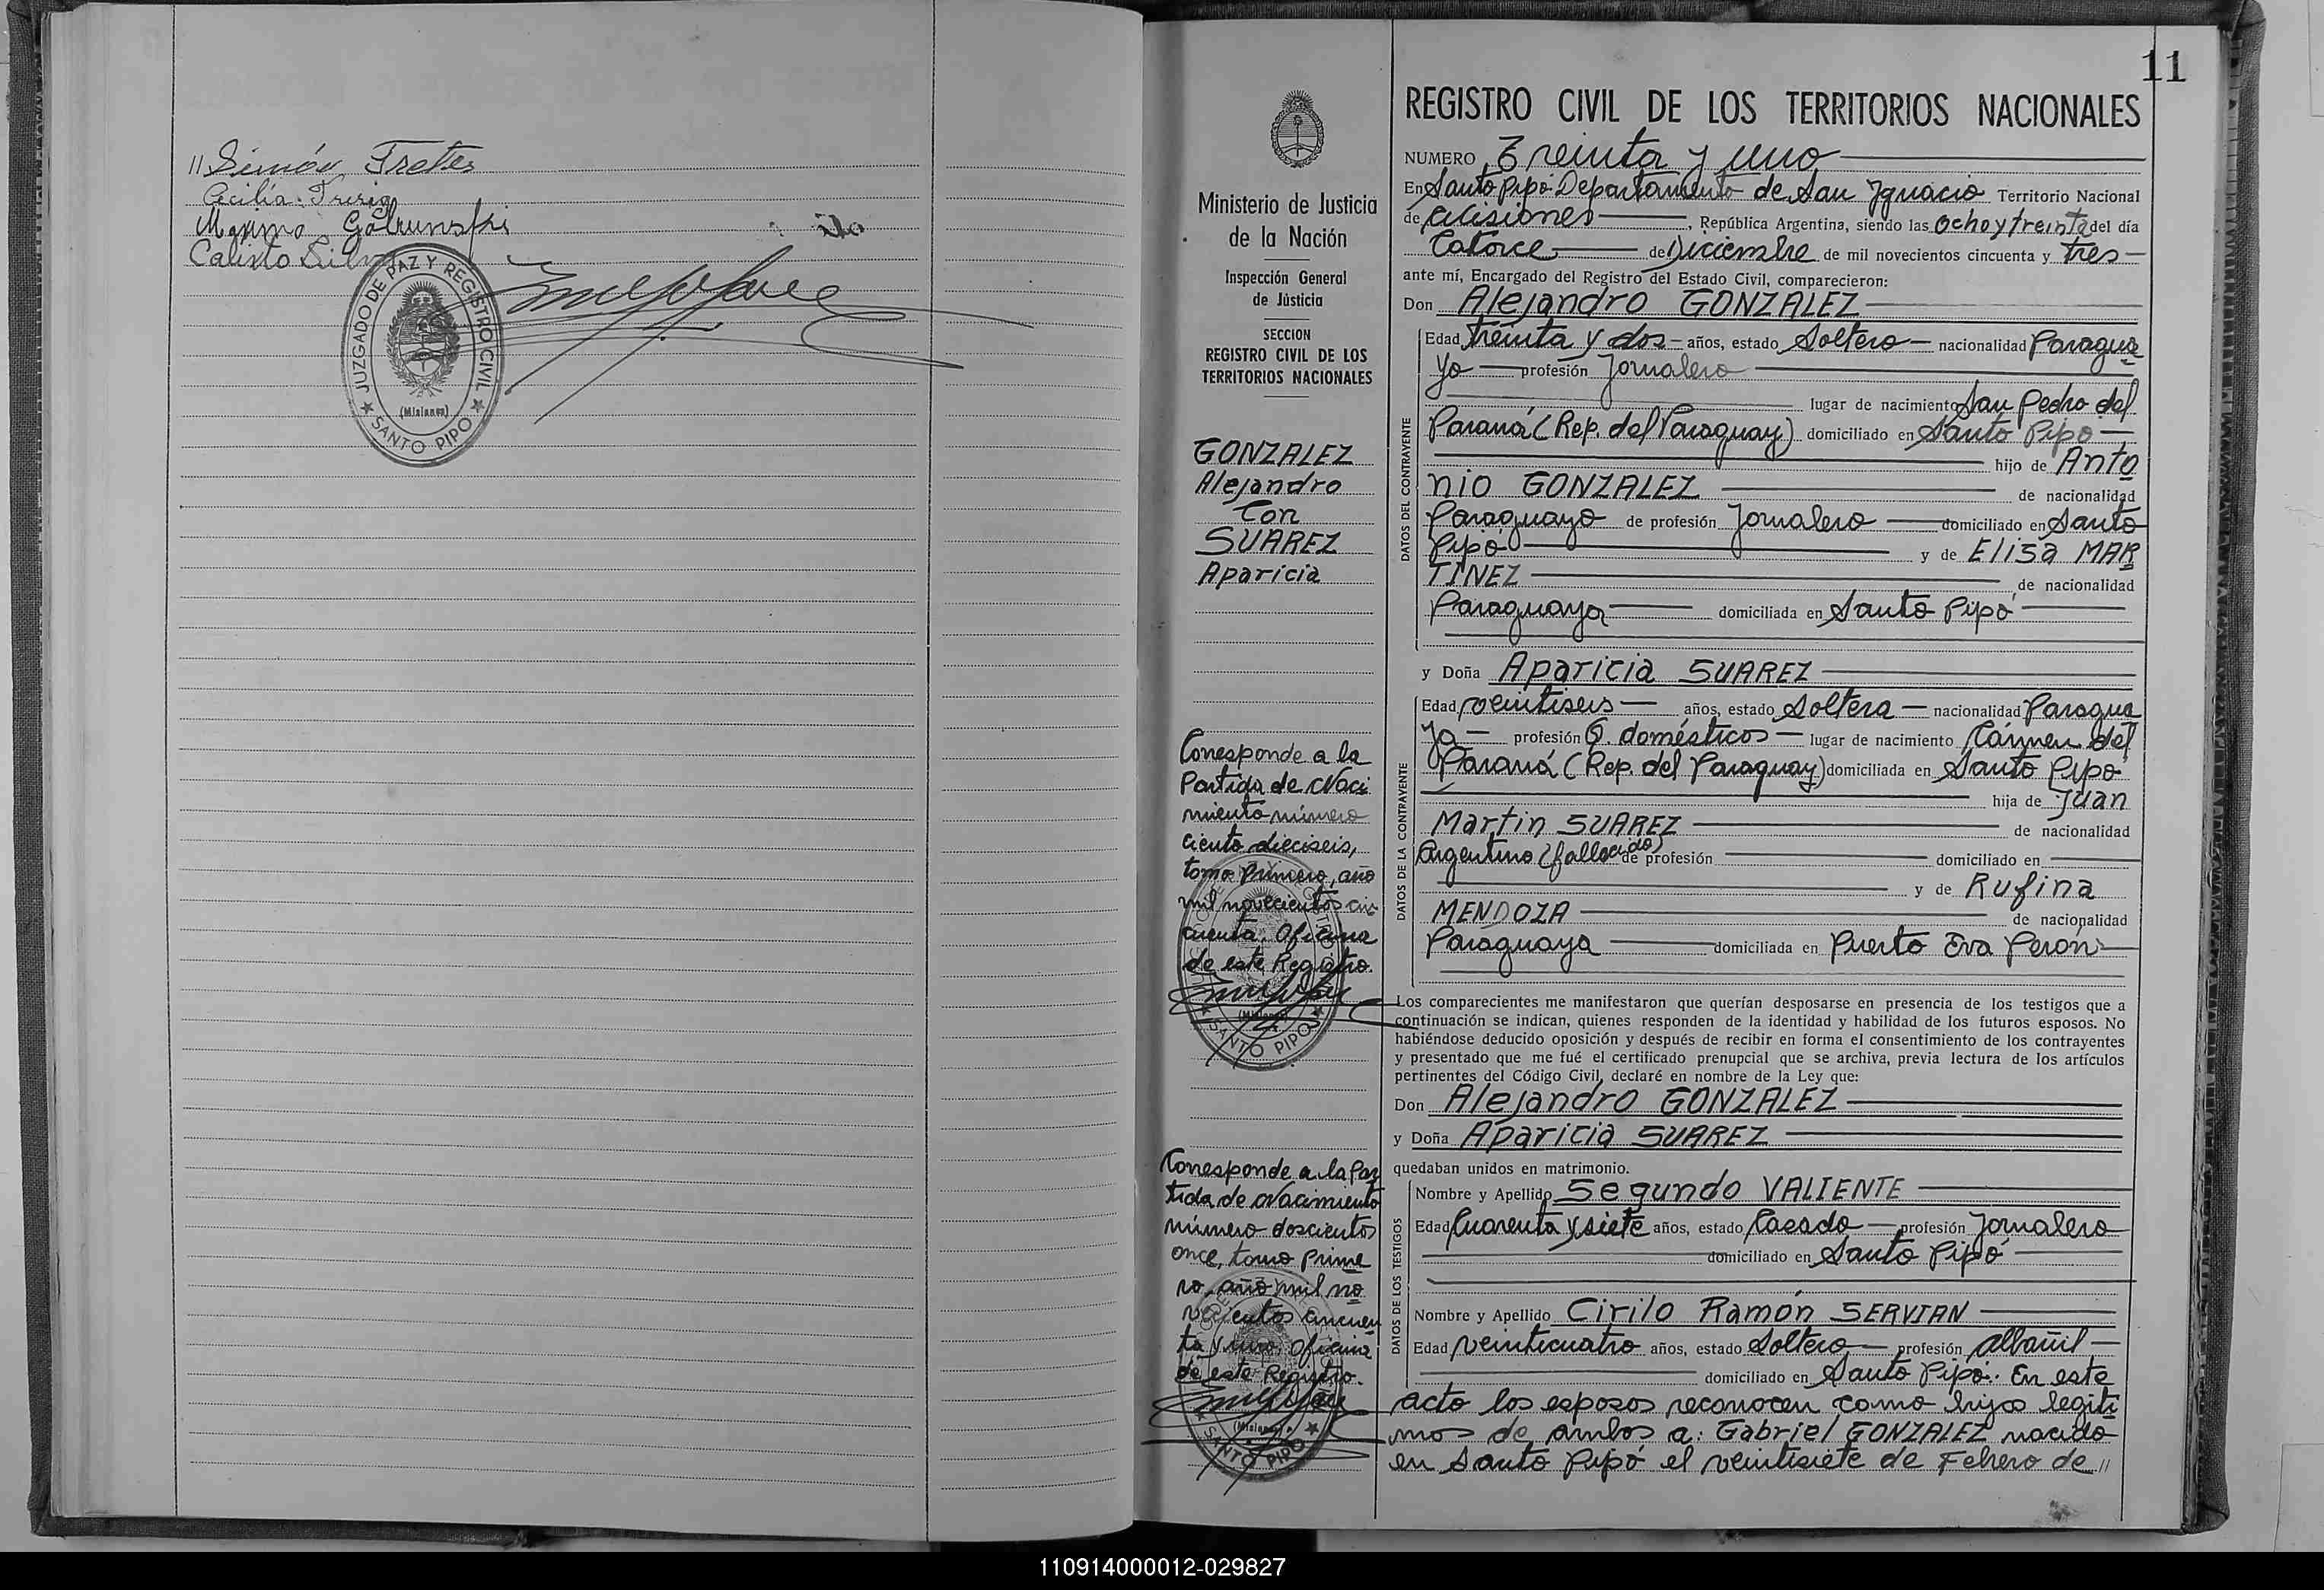 // Simón Fretes
Cecilia
Maximo
Calixto Silva
JUZGADO DE PAZ Y REGISTRO CIVIL
(Misiones)
SANTO PIPO
11
Ministerio de Justicia
de la Nación
Inspección General
de Justicia
SECCION
REGISTRO CIVIL DE LOS
TERRITORIOS NACIONALES
GONZALEZ
Alejandro
Con
SUAREZ
Aparicia
Corresponde a la
Partida de Naci
miento número
ciento dieciseis,
tomo Primero, año
mil novecientos cin
cuenta. Oficina
de este Registro.
(Misiones)
SANTO PIPO
Corresponde a la Par
tida de Nacimiento
número doscientos
once, tomo Prime
ro, año mil no
vecientos cincuen
ta y uno. Oficina
de este Registro.
(Misiones)
SANTO PIPO
REGISTRO CIVIL DE LOS TERRITORIOS NACIONALES
NUMERO Treinta y uno
En Santo Pipó Departamento de San Ignacio Territorio Nacional
de Misiones, República Argentina, siendo las Ocho y treinta del día
Catorce de Diciembre de mil novecientos cincuenta y tres
ante mí, Encargado del Registro del Estado Civil, comparecieron:
Don Alejandro GONZALEZ
DATOS DEL CONTRAYENTE
Edad treinta y dos años, estado Soltero nacionalidad Paragua
yo profesión Jornalero
lugar de nacimiento San Pedro del
Paraná (Rep. del Paraguay) domiciliado en Santo Pipó
hijo de Anto
nio GONZALEZ de nacionalidad
Paraguayo de profesión Jornalero domiciliado en Santo
Pipó y de Elisa MAR
TINEZ de nacionalidad
Paraguaya domiciliada en Santo Pipó
y Doña Aparicia SUAREZ
DATOS DE LA CONTRAYENTE
Edad veintiseis años, estado Soltera nacionalidad Paragua
ya profesión Q. domésticos lugar de nacimiento Cármen del
Paraná (Rep. del Paraguay) domiciliada en Santo Pipó
hija de Juan
Martin SUAREZ de nacionalidad
Argentino (fallecido) de profesión domiciliado en
y de Rufina
MENDOZA de nacionalidad
Paraguaya domiciliada en Puerto Eva Perón
Los comparecientes me manifestaron que querían desposarse en presencia de los testigos que a
continuación se indican, quienes responden de la identidad y habilidad de los futuros esposos. No
habiéndose deducido oposición y después de recibir en forma el consentimiento de los contrayentes
y presentado que me fué el certificado prenupcial que se archiva, previa lectura de los artículos
pertinentes del Código Civil, declaré en nombre de la Ley que:
Don Alejandro GONZALEZ
y Doña Aparicia SUAREZ
quedaban unidos en matrimonio.
DATOS DE LOS TESTIGOS
Nombre y Apellido Segundo VALIENTE
Edad Cuarenta y siete años, estado Casado profesión Jornalero
domiciliado en Santo Pipó
Nombre y Apellido Cirilo Ramón SERVIAN
Edad veinticuatro años, estado Soltero profesión Albañil
domiciliado en Santo Pipó. En este
acto los esposos reconocen como hijos legíti
mos de ambos a: Gabriel GONZALEZ nacido
en Santo Pipó el veintisiete de Febrero de //
110914000012-029827